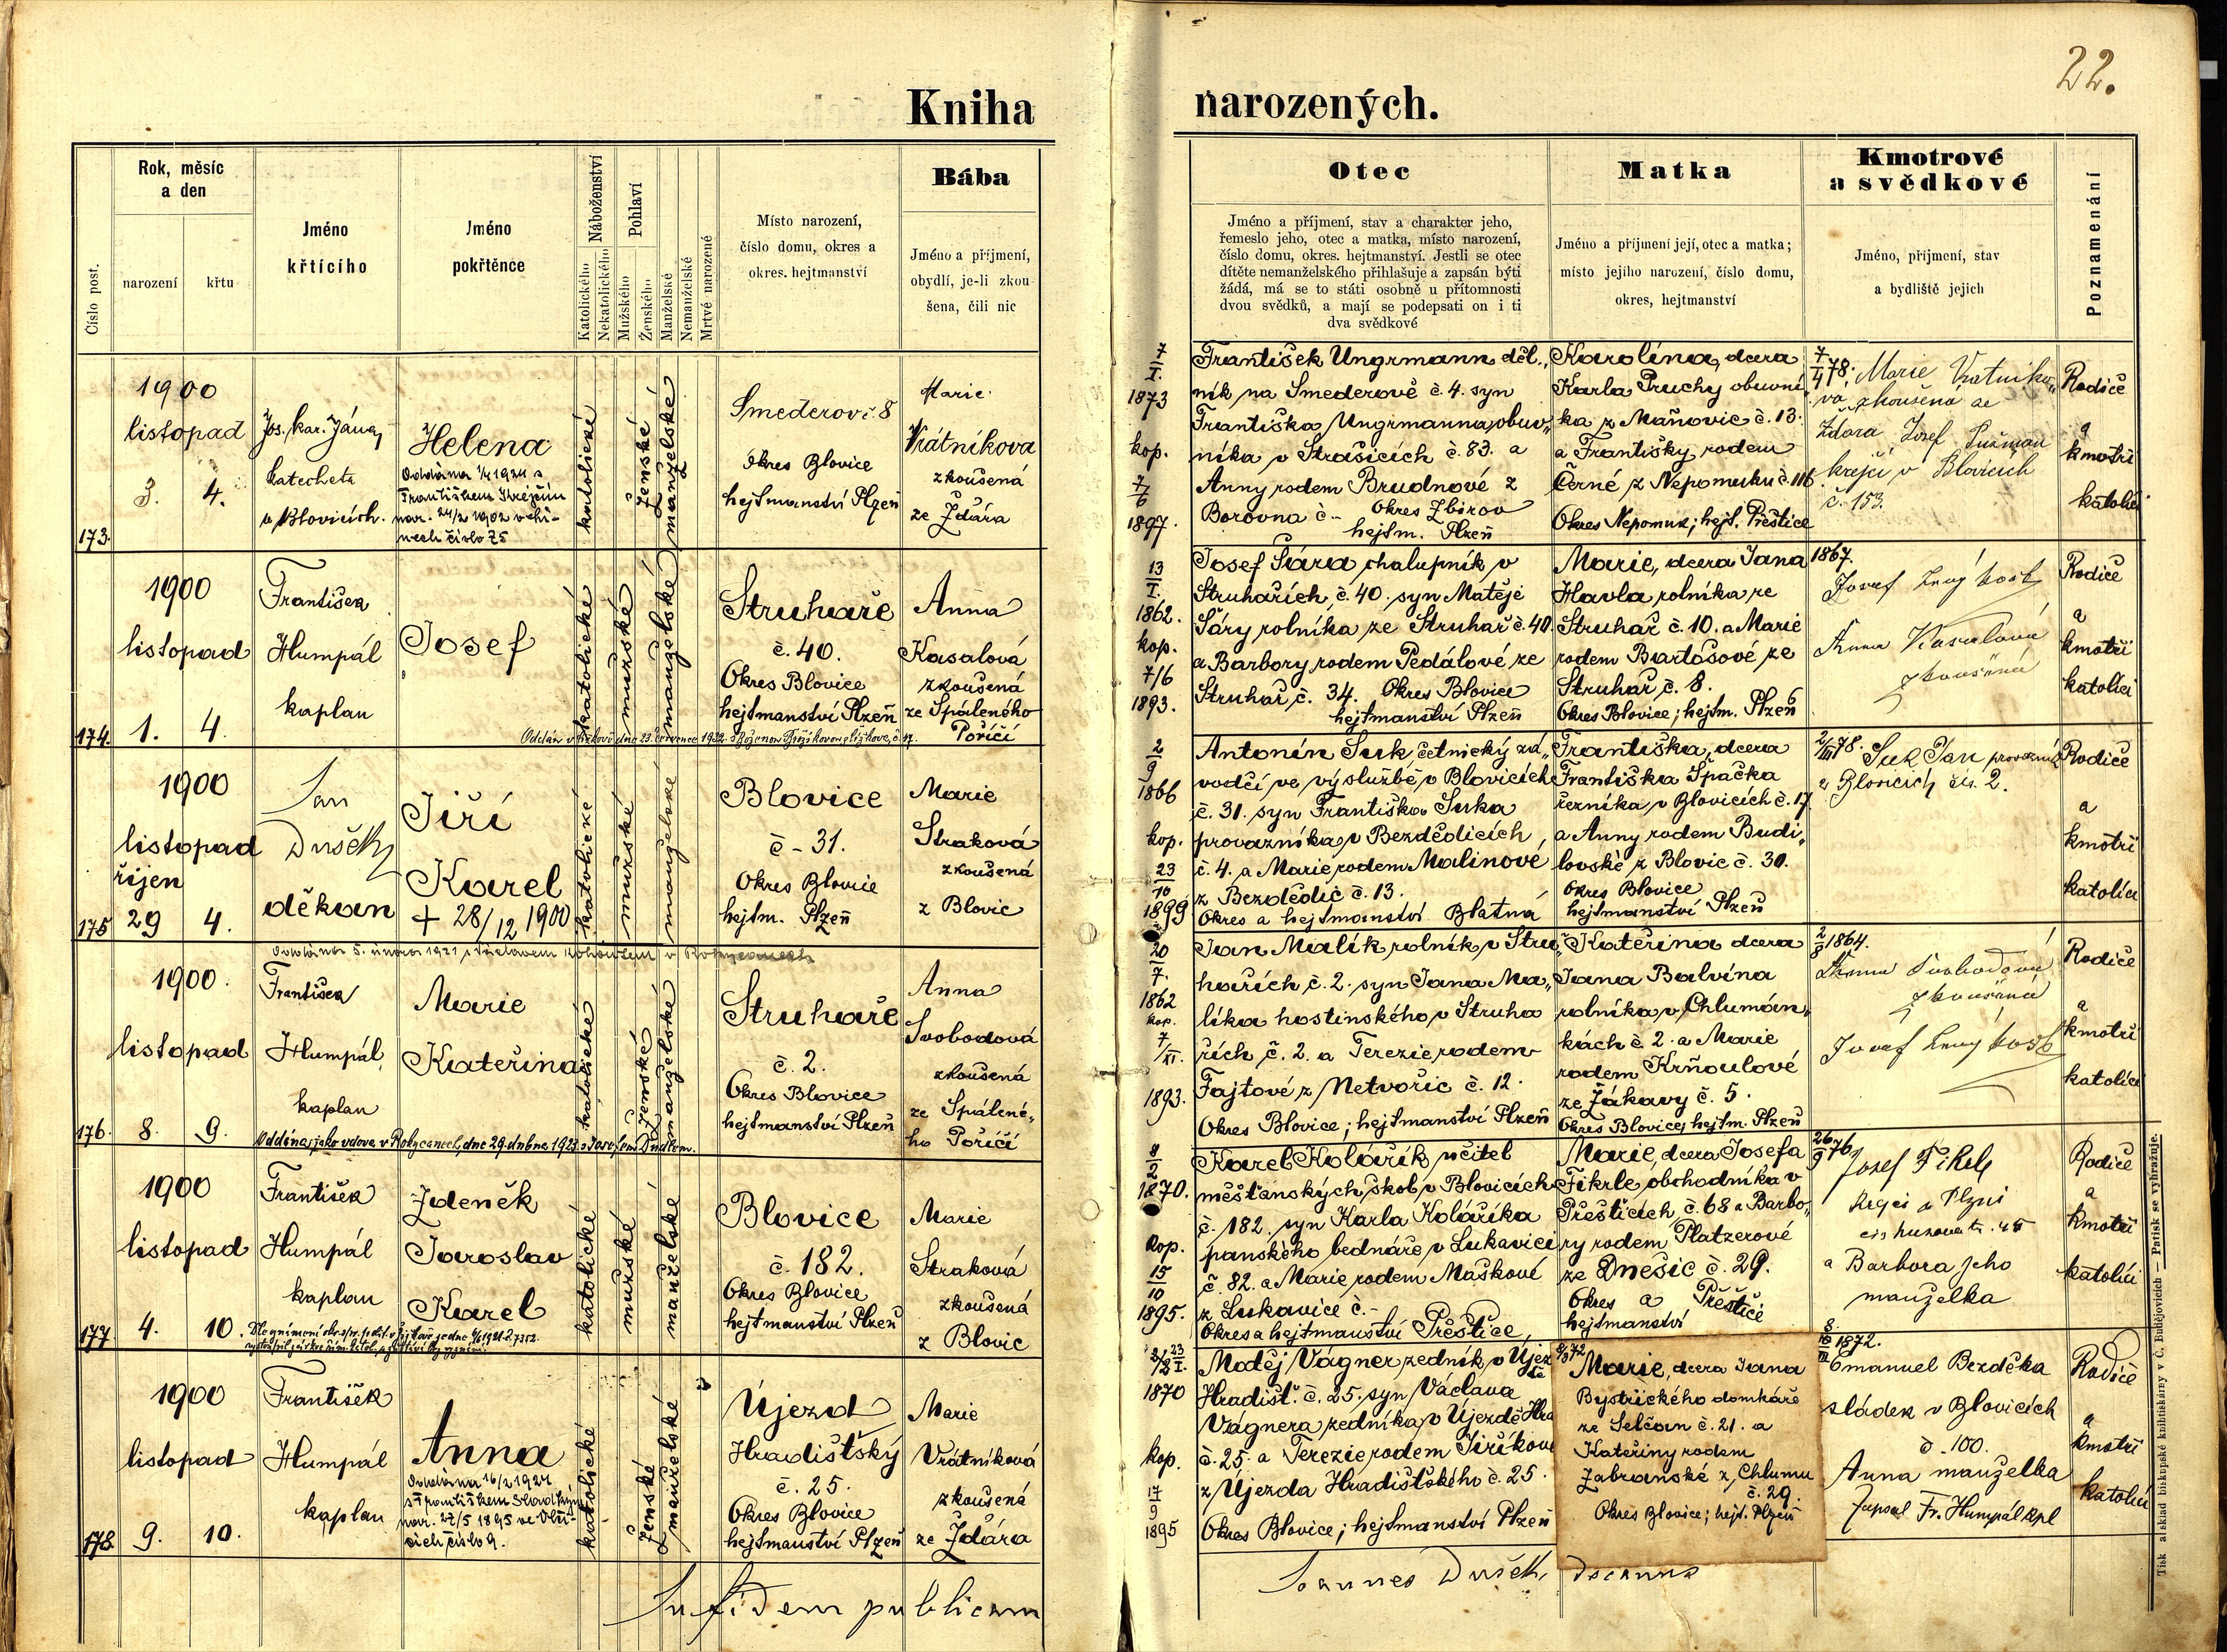 22.
Kniha narozených.
Číslo post.
Rok, měsíc
a den
narození
křtu
Jméno
křtícího
Jméno
pokřtěnce
Náboženství
Katolického
Nekatolického
Pohlaví
Mužského
Ženského
Manželské
Nemanželské
Mrtvé narozené
Místo narození,
číslo domu, okres a
okres. hejtmanství
Bába
Jméno a příjmení,
obydlí, je-li zkou
šena, čili nic
Otec
Jméno a příjmení, stav a charakter jeho,
řemeslo jeho, otec a matka, místo narození,
číslo domu, okres. hejtmanství. Jestli se otec
dítěte nemanželského přihlašuje a zapsán býti
žádá, má se to státi osobně u přítomnosti
dvou svědků, a mají se podepsati on i ti
dva svědkové
Matka
Jméno a příjmení její, otec a matka;
místo jejího narození, číslo domu,
okres, hejtmanství
Kmotrové
a svědkové
Jméno, příjmení, stav
a bydliště jejich
Poznamenání
173.
1900
listopad
3. 4.
Jos. Kar.
katecheta
v Blovicích.
Helena
Oddána 1924 s
Františkem Krejčím
nar. 24/2 1902
číslo 75
katolické
ženské
manželské
Smederov č. 8
okres Blovice
hejtmanství Plzeň
Marie
Vrátníkova
zkoušená
ze Ždára
7
I.
1873
kop.
7/6
1897.
František Ungrmann děl„
ník na Smederově č. 4. syn
Františka Ungrmanna, obuv„
níka v Strašicích č. 83. a
Anny rodem Brudnové z
Borovna č - Okres Zbirov
hejtm. Plzeň
Karolína, dcera
Karla Pruchy obuvní
ka z Maňovic č. 13.
a Františky rodem
Černé z Nepomuku č. 116
Okres Nepomuk; hejt. Přeštice
7/4 78.
Marie Vratníko„
vá, zkoušená ze
Ždára Josef
krejčí v Blovicích
č. 153.
Rodiče
a
kmotři
katolíci
174.
1900
listopad
1. 4.
František
Humpál
kaplan
Josef
katolické
mužské
manželské
Struhaře
č. 40.
Okres Blovice
hejtmanství Plzeň
Anna
Kasalová
zkoušená
ze Spáleného
Poříčí
Oddán v Žižkově dne 23. července 1922 s Boženou
13
I.
1862.
kop.
7/6
1893.
Josef Šára, chalupník v
Struhařích, č. 40. syn Matěje
Šáry rolníka ze Struhař č. 40.
a Barbory rodem Pedálové ze
Struhař č. 34. Okres Blovice
hejtmanství Plzeň
Marie, dcera Jana
Havla rolníka ze
Struhař č. 10. a Marie
rodem Bartošové ze
Struhař č. 8.
Okres Blovice; hejtm. Plzeň
1867.
Josef
Anna Kasalová
zkoušená
Rodiče
a
kmotři
katolíci
175
1900
listopad
říjen
29 4.
Jan
Dušek
děkan
Jiří
Karel
+ 28/12 1900
katolické
mužské
manželské
Blovice
č - 31.
Okres Blovice
hejtm. Plzeň
Marie
Straková
zkoušená
z Blovic
2
9
1866
kop.
23
10
1899
Antonín Suk, četnický zá„
vodčí ve výslužbě v Blovicích
č. 31. syn Františka Suka
provazníka v Bezdědicích,
č. 4. a Marie rodem Malinové
z Bezdědic č. 13.
Okres a hejtmanství Blatná
Františka, dcera
Františka Špačka
řezníka v Blovicích č. 17
a Anny rodem Budi„
lovské z Blovic č. 30.
Okres Blovice
hejtmanství Plzeň
2/III 78.
Suk Jan provazník
v Blovicích čís. 2.
Rodiče
a
kmotři
katolíci
Oddána 5. února 1921 s Václavem v Rokycanech
176.
1900.
listopad
8. 9.
František
Humpál,
kaplan
Marie
Kateřina
katolické
ženské
manželské
Struhaře
č. 2.
Okres Blovice
hejtmanství Plzeň
Anna
Svobodová
zkoušená
ze Spálené„
ho Poříčí
Oddána, jako vdova v Rokycanech, dne 29. dubna 1923 s Josefem
20
7.
1862
kop.
7/XI.
1893.
Jan Malík, rolník v Stru„
hařích, č. 2. syn Jana Ma„
líka hostinského v Struha
řích č. 2. a Terezie rodem
Fajtové z Netvořic č. 12.
Okres Blovice; hejtmanství Plzeň
Kateřina dcera
Jana Balvína
rolníka v Chlumán„
kách č. 2. a Marie
rodem Krňoulové
ze Žákavy č. 5.
Okres Blovice, hejtm. Plzeň
1864.
Anna Svobodová
zkoušená
Josef
Rodiče
a
kmotři
katolíci
177.
1900
listopad
4. 10.
František
Humpál
kaplan
Zdeněk
Jaroslav
Karel
katolické
mužské
manželské
Blovice
č. 182.
Okres Blovice
hejtmanství Plzeň
Marie
Straková
zkoušená
z Blovic
8
2
1870.
kop.
15
10
1895.
Karel Kolářík, učitel
měšťanských škol v Blovicích
č. 182. syn Karla Koláříka
panského bednáře v Lukavici
č. 82. a Marie rodem Maškové
z Lukavice č.-
Okres a hejtmanství Přeštice,
Marie, dcera Josefa
Fikrle, obchodníka v
Přešticích č. 68 a Barbo„
ry rodem Platzerové
ze Dnešic č. 29.
Okres a Přeštice
hejtmanství
26/9 76
Josef Fikrle
a Barbora jeho
manželka
Rodiče
a
kmotři
katolíci
178.
1900
listopad
9. 10.
František
Humpál
kaplan
Anna
Oddána 16/2 1921
s Františkem
nar. 27/5 1895 ve
číslo 9.
katolické
ženské
manželské
Újezd
Hradišťský
č. 25.
Okres Blovice
hejtmanství Plzeň
Marie
Vrátníková
zkoušená
ze Ždára
1870
kop.
17
9
1895
Matěj Vágner, zedník v Újez
Hradišť. č. 25. syn Václava
Vágnera zedníka v Újezdě Hra
č. 25. a Terezie rodem Jiříkové
z Újezda Hradišťského č. 25.
Okres Blovice; hejtmanství Plzeň
Marie, dcera Jana
Bystřického domkáře
ze Selčan č. 21. a
Kateřiny rodem
Zabranské z Chlumu
č. 29.
Okres Blovice; hejt. Plzeň
1872.
Emanuel Bezděka
sládek v Blovicích
č. 100.
Anna manželka
Zapsal Fr. Humpál kpl
Rodiče
a
kmotři
katolíci
In fidem publicam
Joannes Dušek, decanus
Tisk a sklad biskupské knihtiskárny v Č. Budějovicích — Patisk se vyhražuje.